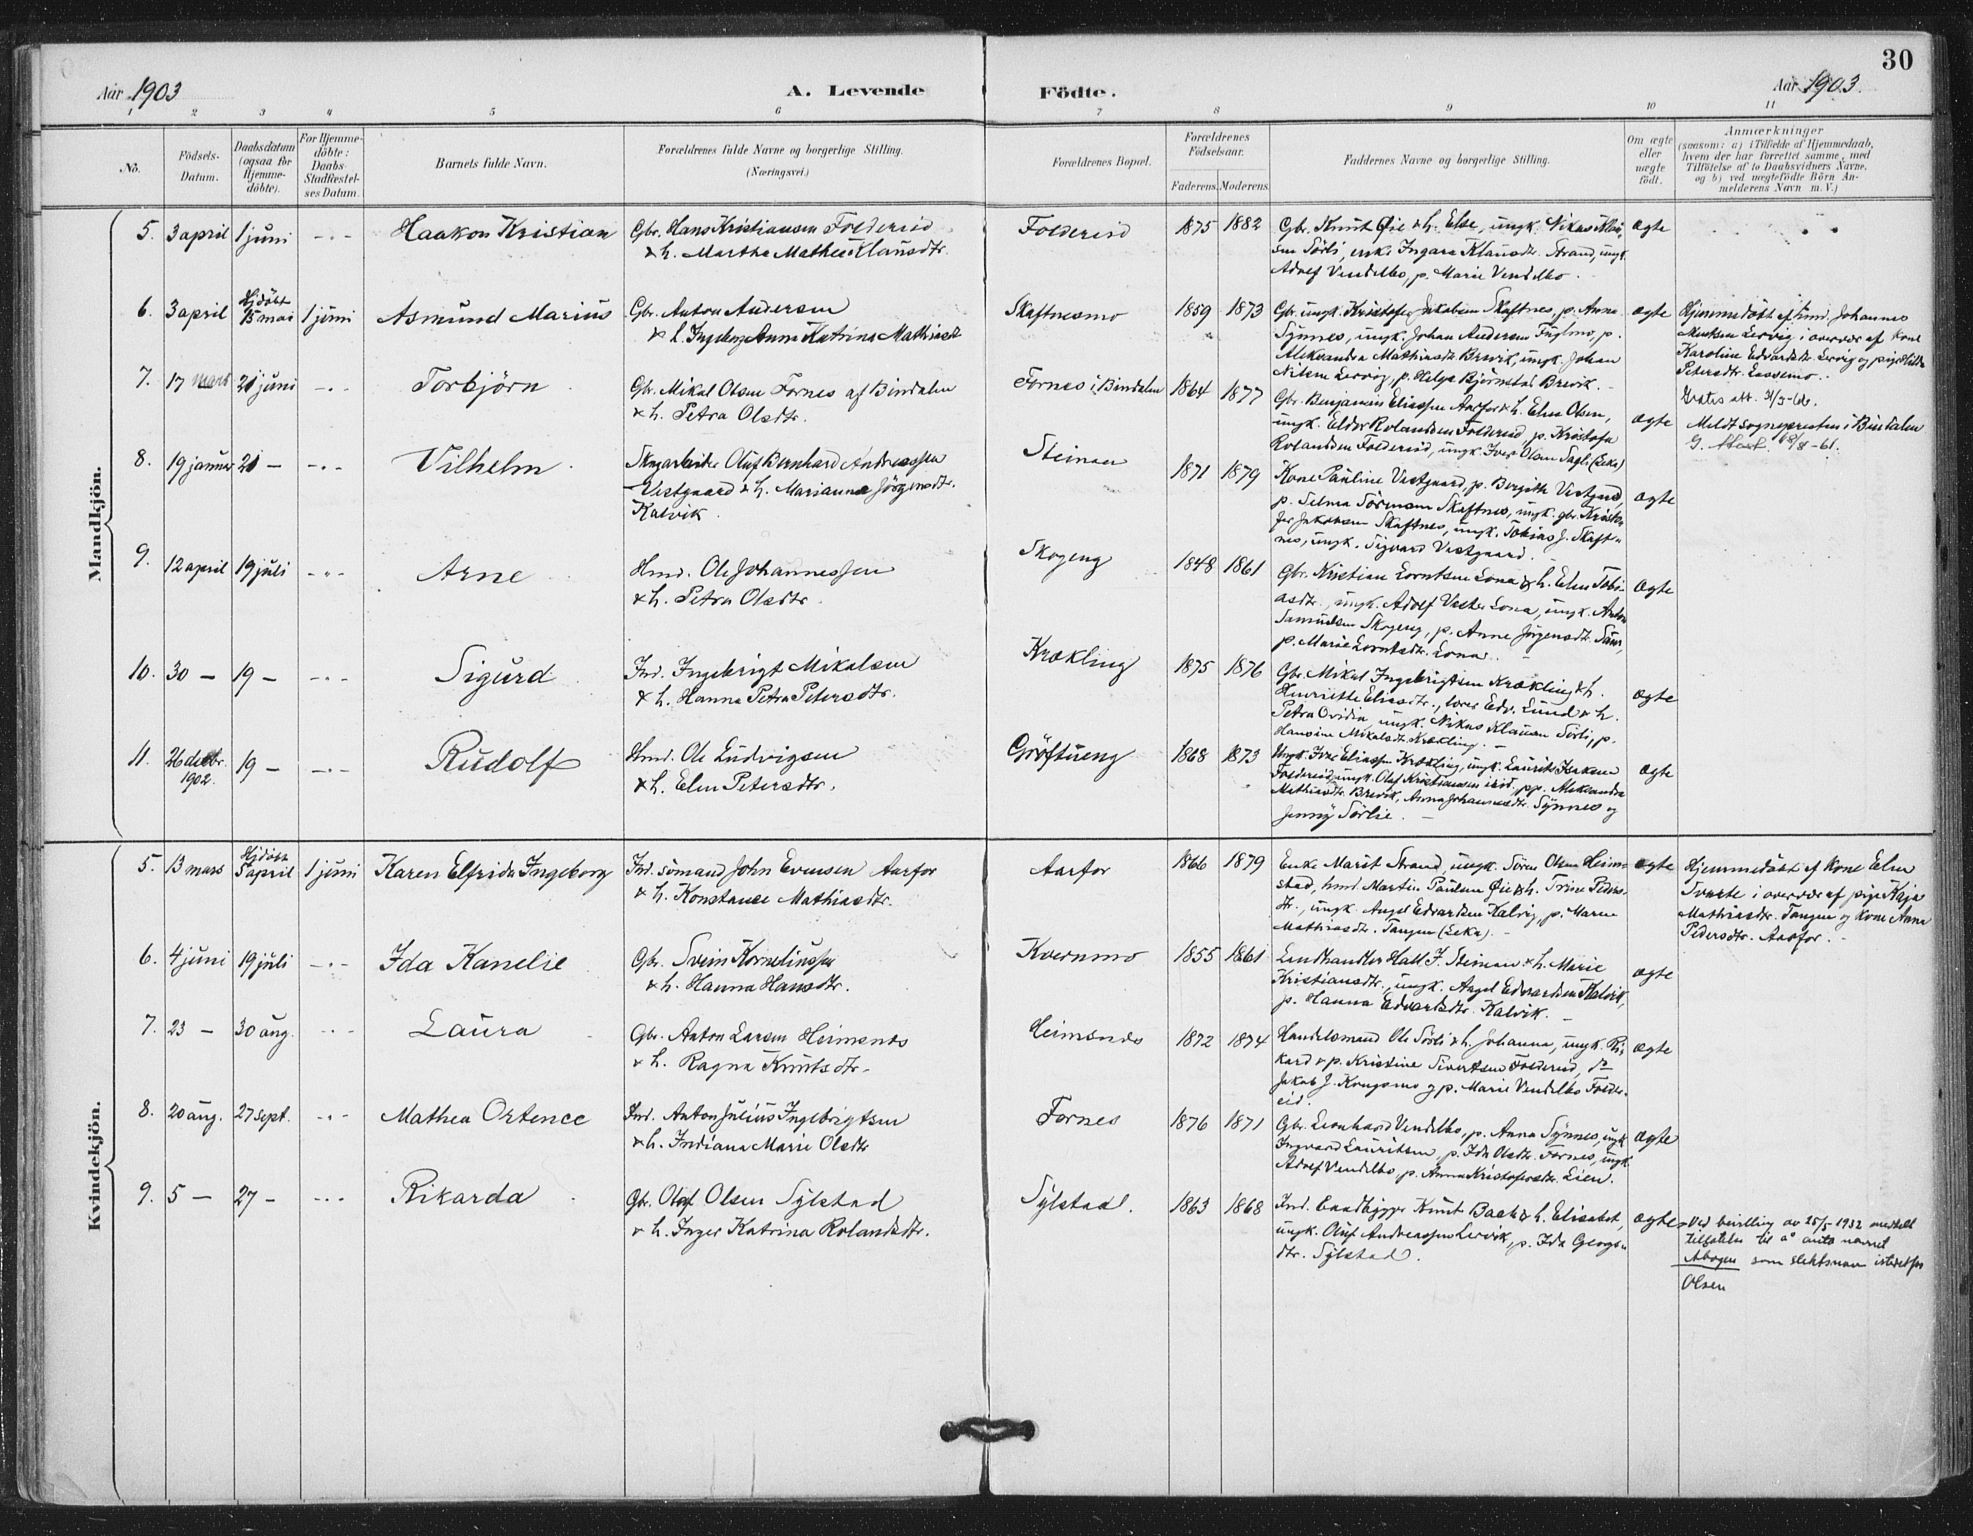 30
Aar 1903
A. Levende Födte.
Aar 1903
1 2 3 4 5 6 7 8 9 10 11
No.
Födsels-Datum.
Daabsdatum (ogsaa for Hjemme-döbte).
For Hjemme-döbte: Daabs-Stadfæstel-ses Datum.
Barnets fulde Navn.
Forældrenes fulde Navne og borgerlige Stilling. (Næringsvei.)
Forældrenes Bopæl.
Forældrenes Födselsaar.
Faderens. Moderens.
Faddernes Navne og borgerlige Stilling.
Om ægte eller uægte födt.
Anmærkninger
(saasom: a) i Tilfælde af Hjemmedaab, hvem der har forrettet samme, med Tilföielse af to Daabsvidners Navne, og b) ved uægtefödte Börn An-melderens Navn m. V.)
Mandkjön.
5. 3 april 1 juni -"- Haakon Kristian
Gbr. Hans Kristiansen Foldereid
& h. Martha Mathea Klausdtr.
Foldereid 1875 1882
Gbr. Knut Øie & h. Else, ungk. Nikas Klau-
sen Sørli, enke Ingara Klausdtr. Strand, ungk.
Adolf Vendelbo, p. Marie Vendelbo.
ægte
6. 3 april Hjdøbt 15 mai 1 juni Asmund Marius
Gbr. Anton Andersen
& h. Ingeborg Anna Katrina Mathiasdtr
Skaftnesmo 1859 1873
Gbr. ungk. Kristofer Jakobsen Skaftnes, p. Anna
Synnes, ungk. Johan Andersen Fuglmo, p.
Aleksandra Mathiasdtr Brevik, ungk. Johan
Nilsen Lervig, p. Helga Bjørnstad Brevik.
ægte
Hjemmedøbt af Hmd. Johannes
Mentsen Lervig i overvær af kone
Karoline Edvardsdtr. Lervig og pige Hilda
Petersdtr. Lassemo.
7. 17 mars 21 juni -"- Torbjörn
Gbr. Mikal Olsen Fornes af Bindalen
& h. Petra Olsdtr.
Fornes i Bindalen 1864 1877
Gbr. Benjamin Eliassen Aarfor & h. Elen Olsen,
ungk. Eldor Rolandsen Foldereid, p. Kristofa
Rolandsen Foldereid, ungk. Iver Olsen Sagli (Leka)
ægte
Gratis att. 31/3-66.
Meldt sognepresten i Bindalen
G. Attest 18/8-61.
8. 19 januar 21 - -"- Vilhelm
Sagarbeider Oluf Bernhard Andreassen
Vestgaard & h. Marianna Jørgensdtr.
Kalvik.
Steinan 1871 1879
Kone Pauline Vestgaard, p. Bergitte Vestgaard,
p. Selma Sörmoen Skaftnes, ungk. gbr. Kristo-
fer Jakobsen Skaftnes, ungk. Tobias J. Skaft-
nes, ungk. Sigvard Vestgaard.
ægte
9. 12 april 19 juli -"- Arne
Hmd. Ole Johannessen
& h. Petra Olsdtr.
Skogeng 1848 1861
Gbr. Kristian Lorntsen Lona & h. Elen Tobi-
asdtr., ungk. Adolf Vester Lona, ungk. Anton
Samuelsen Skogeng, p. Anne Jørgensdtr.
p. Marie Lorntsdtr. Lona.
ægte
10. 30 - 19 - -"- Sigurd
Ind. Ingebrigt Mikalsen
& h. Hanna Petra Petersdtr.
Krækling 1875 1876
Gbr. Mikal Ingebrigtsen Krækling & h.
Henriette Eliasdtr., lærer Edv. Lund & h.
Petra Ovidia, ungk. Nikas Klausen Sørli, p.
Hansine Mikalsdtr. Krækling.
ægte
11. 26 decbr. 1902. 19 - -"- Rudolf
Hmd. Ole Ludvigsen
& h. Elen Petersdtr.
Gröftueng 1868 1873
Ungk. Iver Eliassen Krækling, ungk. Laurits Isaksen
Foldereid, ungk. Olaf Kristiansen ibid., pp. Aleksandra
Mathiasdtr. Brevik, Anna Johannesdtr. Synnes og
Jenny Sørlie.
ægte
Kvindekjön.
5. 13 mars Hjdøbt 5 april 1 juni Karen Elfrida Ingeborg
Ind. sömand John Evensen Aarfor
& h. Konstance Mathiasdtr.
Aarfor 1866 1879
Enke Marit Strand, ungk. Søren Olsen Heim-
stad, hmd. Martin Paulsen Øie & h. Trine Peders-
dtr., ungk. Angel Edvardsen Kalvig, p. Maren
Mathiasdtr. Tangen (Leka).
ægte
Hjemmedøbt af Kone Elen
Tverte i overvær af pige Kaja
Mathiasdtr. Tangen og kone Anna
Pedersdtr. Aarfor.
6. 4 juni 19 juli -"- Ida Kanelie
Gbr. Svein Kornelinssen
& h. Hanna Hansdtr.
Kvernmo 1855 1861
Landhandler Hall J. Steinan & h. Marie
Kristiansdtr., ungk. Angel Edvardsen Kalvik,
p. Hanna Edvardsdtr. Kalvik.
ægte
7. 23 - 30 aug. -"- Laura
Gbr. Anton Larsen Heimsnes
& h. Ragna Knutsdtr.
Heimsnes 1872 1874
Handelsmand Ole Sørli & h. Johanna, ungk. Ri-
kard & p. Kristine Sivertsen Foldereid,
Jakob J. Kongsmo og p. Marie Vendelbo Folder-
eid.
ægte
8. 20 aug. 27 sept. -"- Mathea Ortence
Ind. Anton Julius Ingebrigtsen
& h. Indiana Marie Olsdtr
Fornes 1876 1871
Gbr. Leonhard Vendelbo, p. Anna Synnes, ungk
Ingvard Lauritsen, p. Ida Olsdtr. Fornes, ungk
Adolf Vendelbo, p. Anna Kristofersdtr. Lien.
ægte
9. 5 - 27 - -"- Rikarda
Gbr. Olaf Olsen Sylstad
& h. Inger Katrina Rolandsdtr.
Sylstad. 1863 1868
Ind. Landbygger Knut Baak & h. Elisabet,
ungk. Oluf Andreassen Lervik, p. Ida Georgs-
dtr. Sylstad.
ægte
Ved bevilling av 25/5 1932 meddelt
tillatelse til å anta navnet
Abogen som slektsnavn istedetfor
Olsen